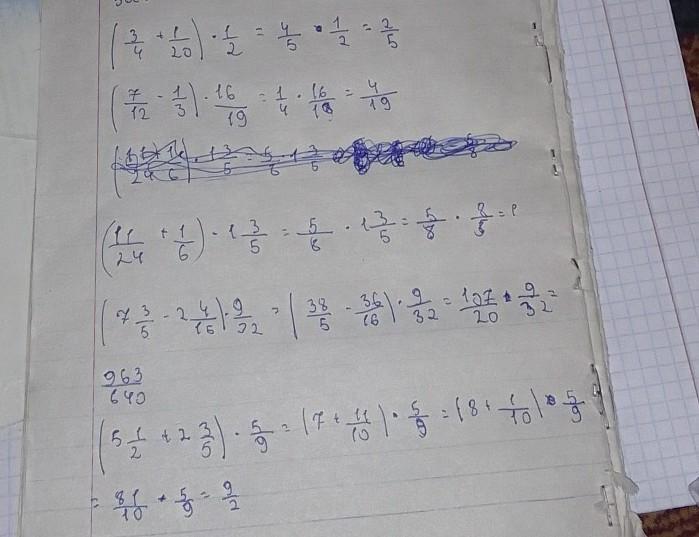 (3/4 + 1/20) · 1/2 = 4/5 · 1/2 = 2/5
(7/12 - 1/3) · 16/19 = 1/4 · 16/19 = 4/19
(11/24 + 1/6) · 1 3/5 = 5/8 · 1 3/5 = 5/8 · 8/5 =
(7 3/5 - 2 4/16) · 9/32 = (38/5 - 36/16) · 9/32 = 107/20 · 9/32 =
963/640
(5 1/2 + 2 3/5) · 5/9 = (7 + 11/10) · 5/9 = (8 + 1/10) · 5/9
= 81/10 · 5/9 = 9/2